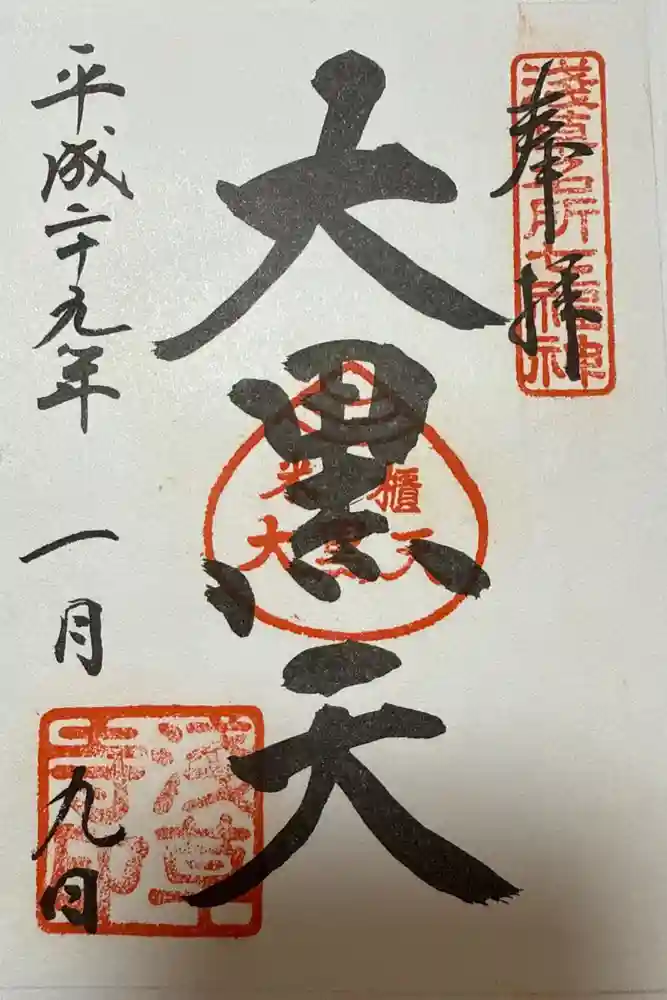 奉拝
淺草名所七福神
大黒天
米櫃
大黒天
平成二十九年
一月
九日
淺草
寺印